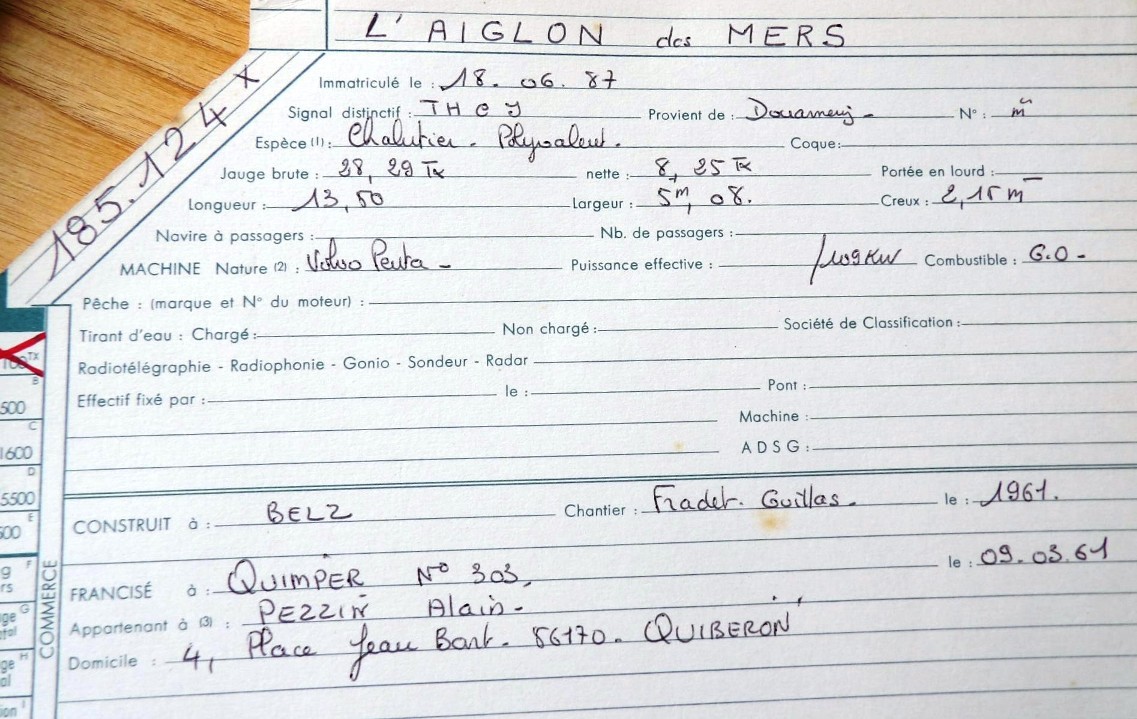 L'AIGLON des MERS
185.124 X
Immatriculé le : 18. 06. 87
Signal distinctif : Provient de : Douarnenez - N° :
Espèce (1) : Chalutier - Polyvalent. Coque:
Jauge brute : 28, 29 Tx nette : 8, 25 Tx Portée en lourd :
Longueur : 13,50 Largeur : 5m, 08. Creux : 2,15 m
Navire à passagers : Nb. de passagers :
MACHINE Nature (2) : Volvo Penta - Puissance effective : 109 KW Combustible : G.O -
Pêche : (marque et N° du moteur) :
Tirant d'eau : Chargé: Non chargé: Société de Classification :
Radiotélégraphie - Radiophonie - Gonio - Sondeur - Radar
Effectif fixé par : le : Pont :
Machine :
A D S G :
CONSTRUIT à : BELZ Chantier : Fradet. Guillas. le : 1961.
FRANCISÉ à : QUIMPER N° 303, le : 09.03.61
Appartenant à (3) : PEZZIN Alain -
Domicile : 4, Place Jean Bart. 56170. QUIBERON
100 TX
B
500
C
1600
D
5500
E
500
F
G
H
I
COMMERCE